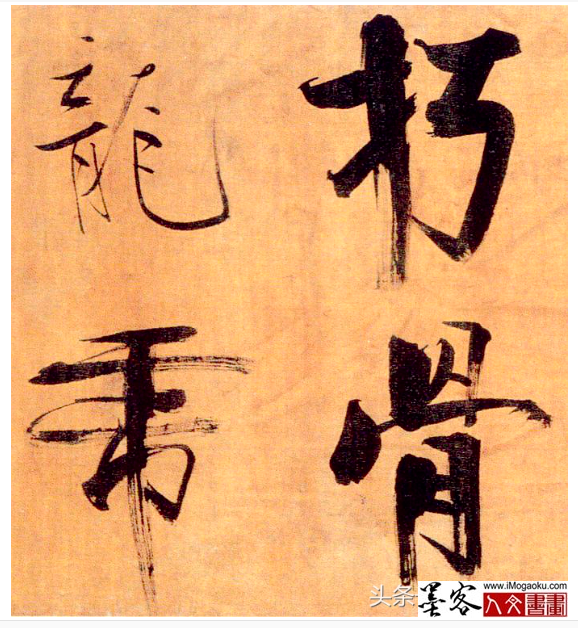 朽骨
龍虎
头条
墨客
www.iMogaoku.com
人文書畫